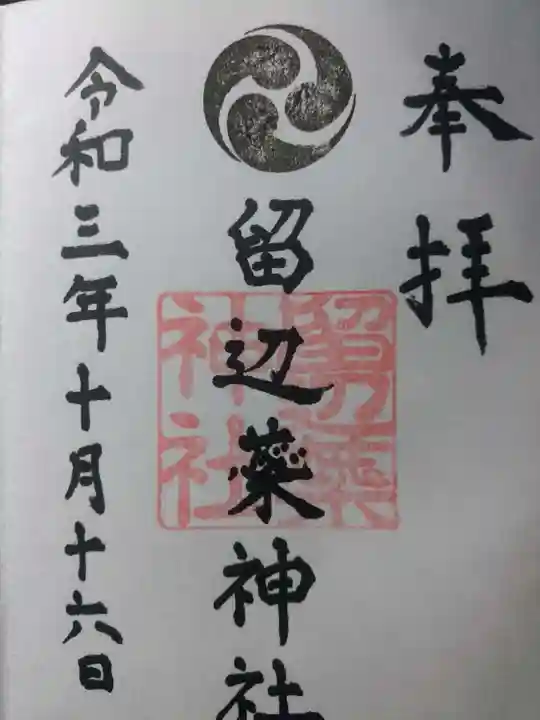 奉拝
留辺蘂神社
令和三年十月十六日
神社